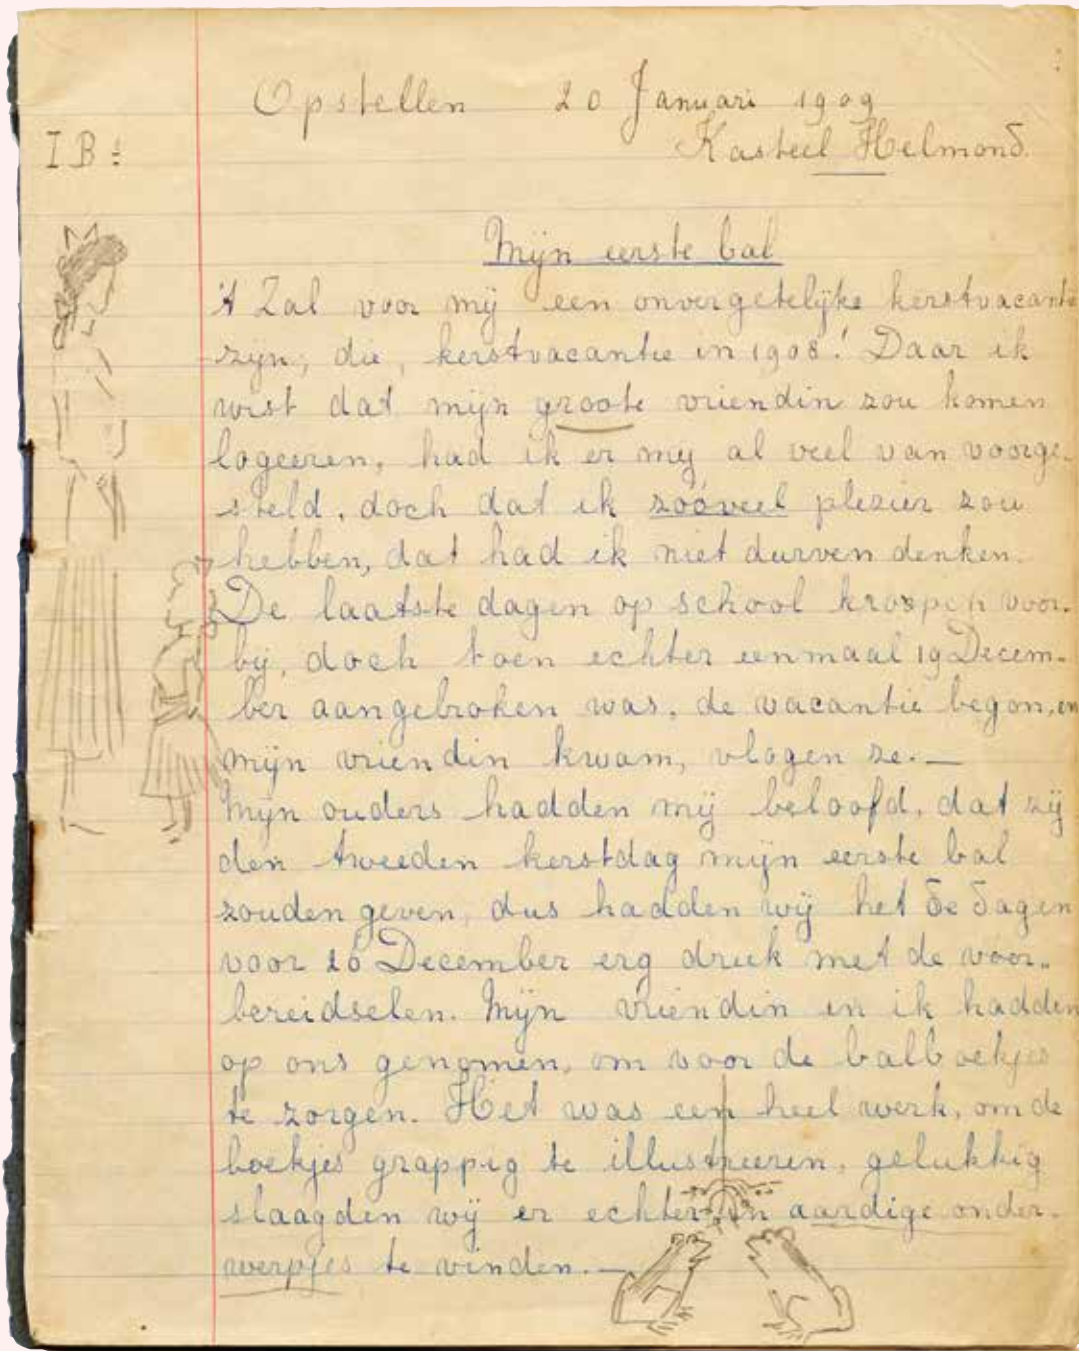 Opstellen 20 Januari 1909
I B:
Kasteel Helmond.
Mijn eerste bal
't Zal voor mij een onvergetelijke kerstvacantie
zijn, die, kerstvacantie in 1908! Daar ik
wist dat mijn groote vriendin zou komen
logeeren, had ik er mij al veel van voorge-
steld, doch dat ik zoóveel plezier zou
hebben, dat had ik niet durven denken.
De laatste dagen op school kropen voor-
bij, doch toen echter eenmaal 19 Decem-
ber aangebroken was, de vacantie begon, en
mijn vriendin kwam, vlogen ze. —
Mijn ouders hadden mij beloofd, dat zij
den tweeden kerstdag mijn eerste bal
zouden geven, dus hadden wij het de dagen
voor 26 December erg druk met de voor-
bereidselen. Mijn vriendin en ik hadden
op ons genomen, om voor de balboekjes
te zorgen. Het was een heel werk, om de
boekjes grappig te illustreeren, gelukkig
slaagden wij er echter in aardige onder-
werpjes te vinden. —